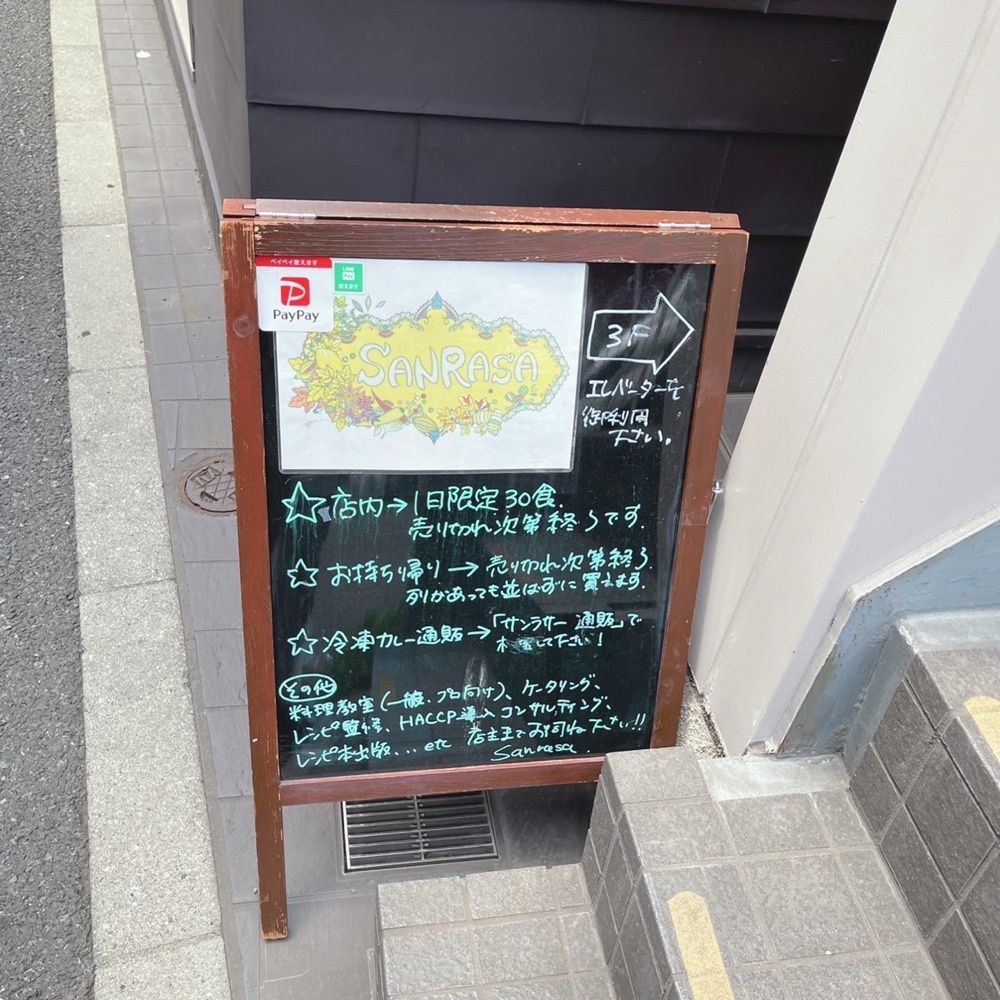 ペイペイ使えます
PayPay
LINE
Pay
使えます
SANRASA
3F
エレベーターを
御利用
下さい。
☆店内→1日限定30食.
売り切れ次第終了です.
☆お持ち帰り→売り切れ次第終了
列があっても並ばずに買えます.
☆冷凍カレー通販→「サンラサー 通販」で
検索して下さい!
その他
料理教室(一般、プロ向け)、ケータリング、
レシピ監修、HACCP導入コンサルティング、
レシピ本出版、... etc 店主までお尋ね下さい!!
Sanrasa.